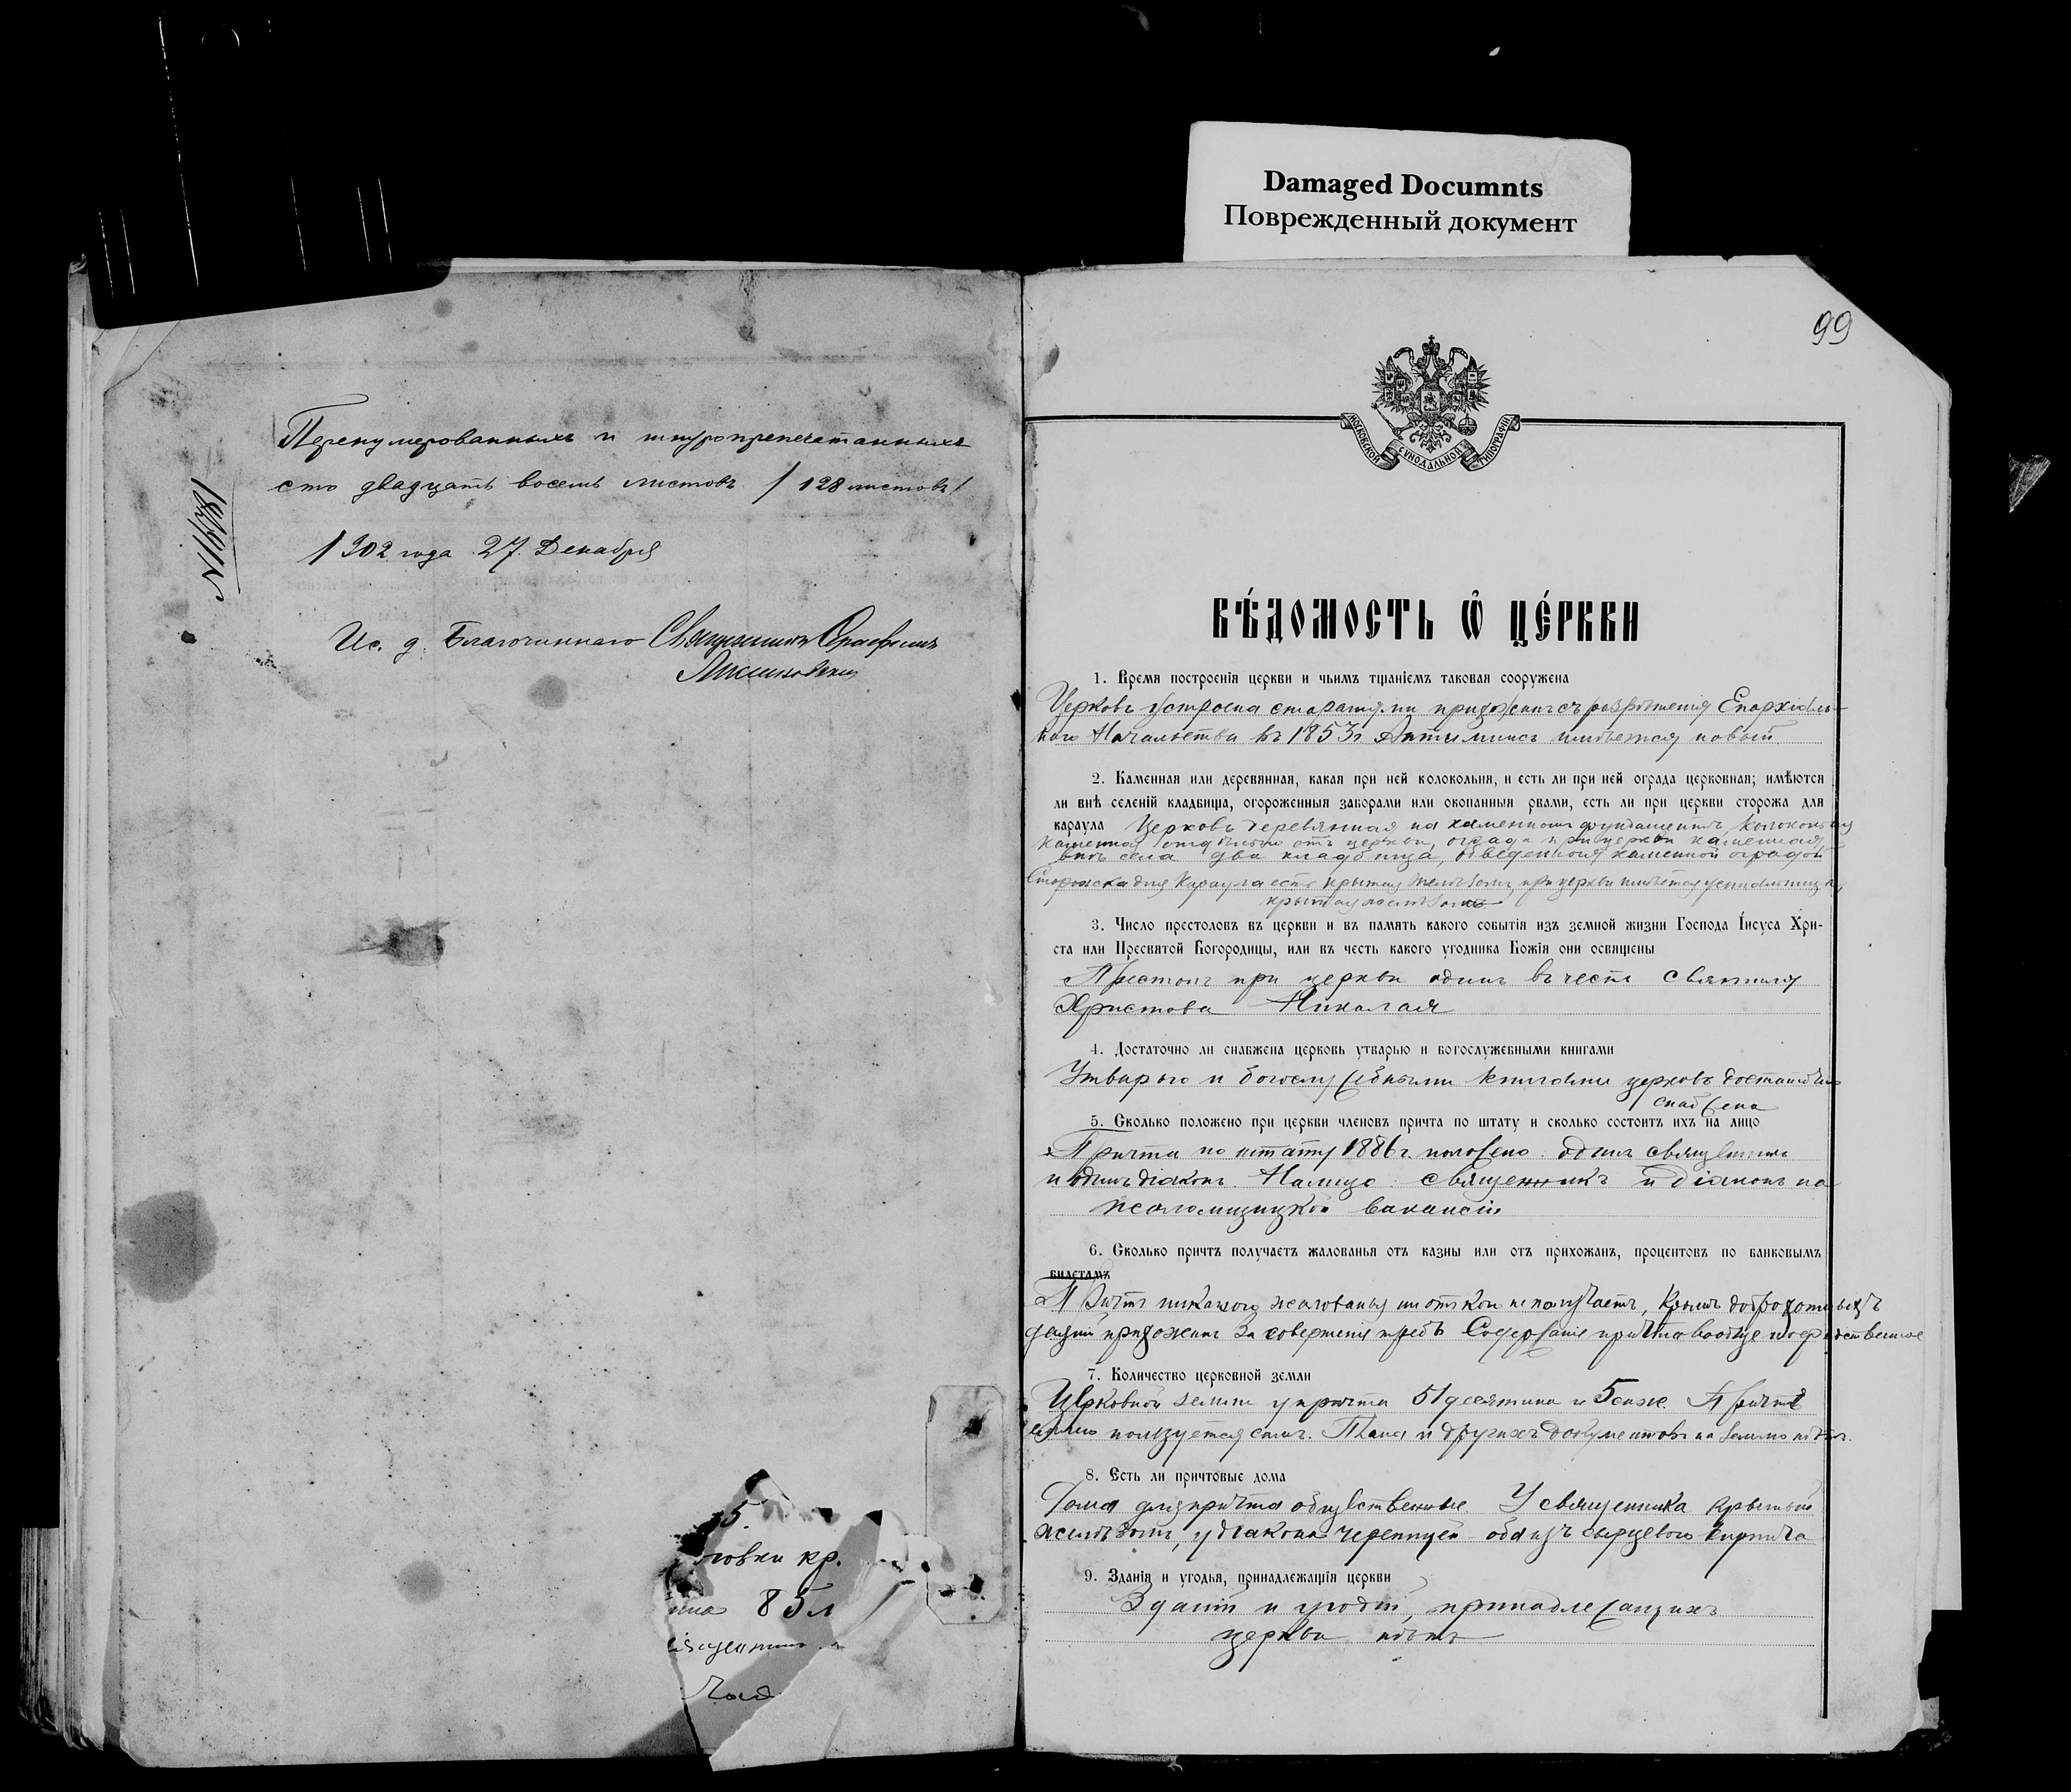 Damaged Documnts
Поврежденный документ
99
Перенумерованныхъ и шнуропрепечатанныхъ
сто двадцать восемь листовъ / 128 листовъ /
1902 года 27 Декабря
Ис. д. Благочиннаго Священникъ
5.
овки кр.
85 л
МОСКОВСКОЙ СѴНОДАЛЬНОЙ ТИПОГРАФІИ
ВѢ́ДОМОСТЬ Ѡ҆ ЦЕ́РКВИ
1. Время построенія церкви и чьимъ тщаніемъ таковая сооружена
Церковь устроена стараніями прихожанъ съ разрѣшенія Епархіаль-
наго Начальства въ 1853 г. Антиминсъ имѣется новый.
2. Каменная или деревянная, какая при ней колокольня, и есть ли при ней ограда церковная; имѣются
ли внѣ селеній кладбища, огороженныя заборами или окопанныя рвами, есть ли при церкви сторожа для
караула Церковь деревянная на каменномъ фундаментѣ, колокольня
каменная отдѣльно отъ церкви, ограда при церкви каменная,
внѣ села два кладбища, обведенныя каменной оградой
Сторожка для караула есть крытая желѣзомъ, при церкви имѣется
крытая желѣзомъ
3. Число престоловъ въ церкви и въ память какого событія изъ земной жизни Господа Іисуса Хри-
ста или Пресвятой Богородицы, или въ честь какого угодника Божія они освящены
Престолъ при церкви одинъ въ честь Святителя
Христова Николая
4. Достаточно ли снабжена церковь утварью и богослужебными книгами
Утварью и богослужебными книгами церковь достаточно
снабжена
5. Сколько положено при церкви членовъ причта по штату и сколько состоитъ ихъ на лицо
Причта по штату 1886 г. положено одинъ священникъ
и одинъ діаконъ. Налицо священникъ и діаконъ на
псаломщицкой вакансіи
6. Сколько причтъ получаетъ жалованья отъ казны или отъ прихожанъ, процентовъ по банковымъ
билетамъ
Причтъ никакого жалованья ни откол не получаетъ, кромѣ доброхотныхъ
даяній прихожанъ за совершенія требъ Содержаніе причта вообще посредственное
7. Количество церковной земли
Церковной земли у причта 51 десятина и 5 саж. Причтъ
землею пользуется самъ. Плана и другихъ документовъ на землю нѣтъ.
8. Есть ли причтовые дома
Дома для причта общественные У священника крытый
желѣзомъ, у діакона черепицей оба изъ сырцеваго кирпича
9. Зданія и угодья, принадлежащія церкви
Зданій и угодій, принадлежащихъ
церкви нѣтъ